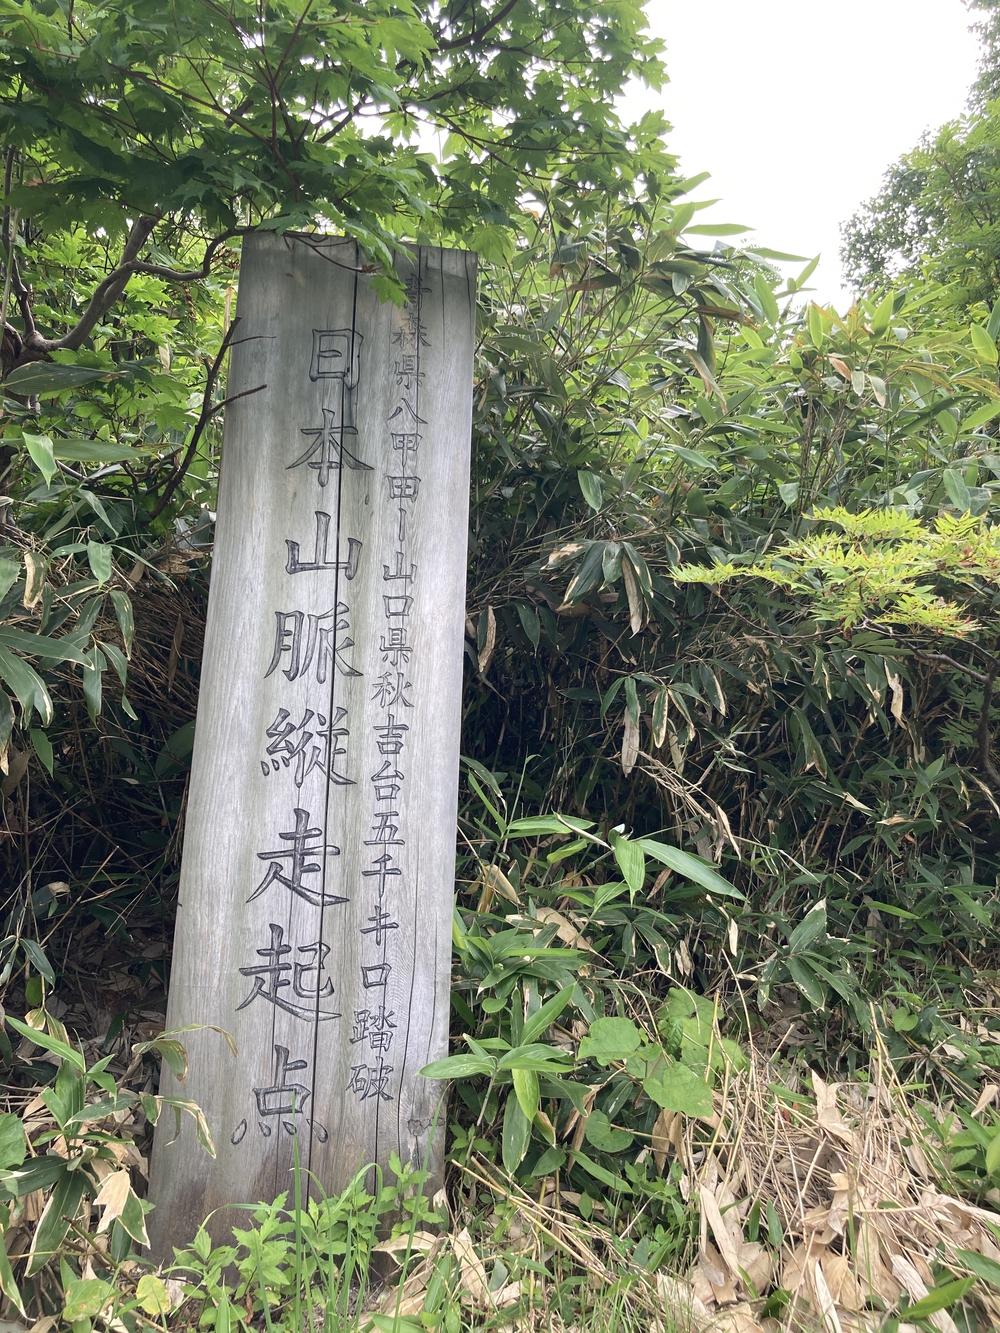 青森県八甲田ー山口県秋吉台五千キロ踏破
日本山脈縦走起点